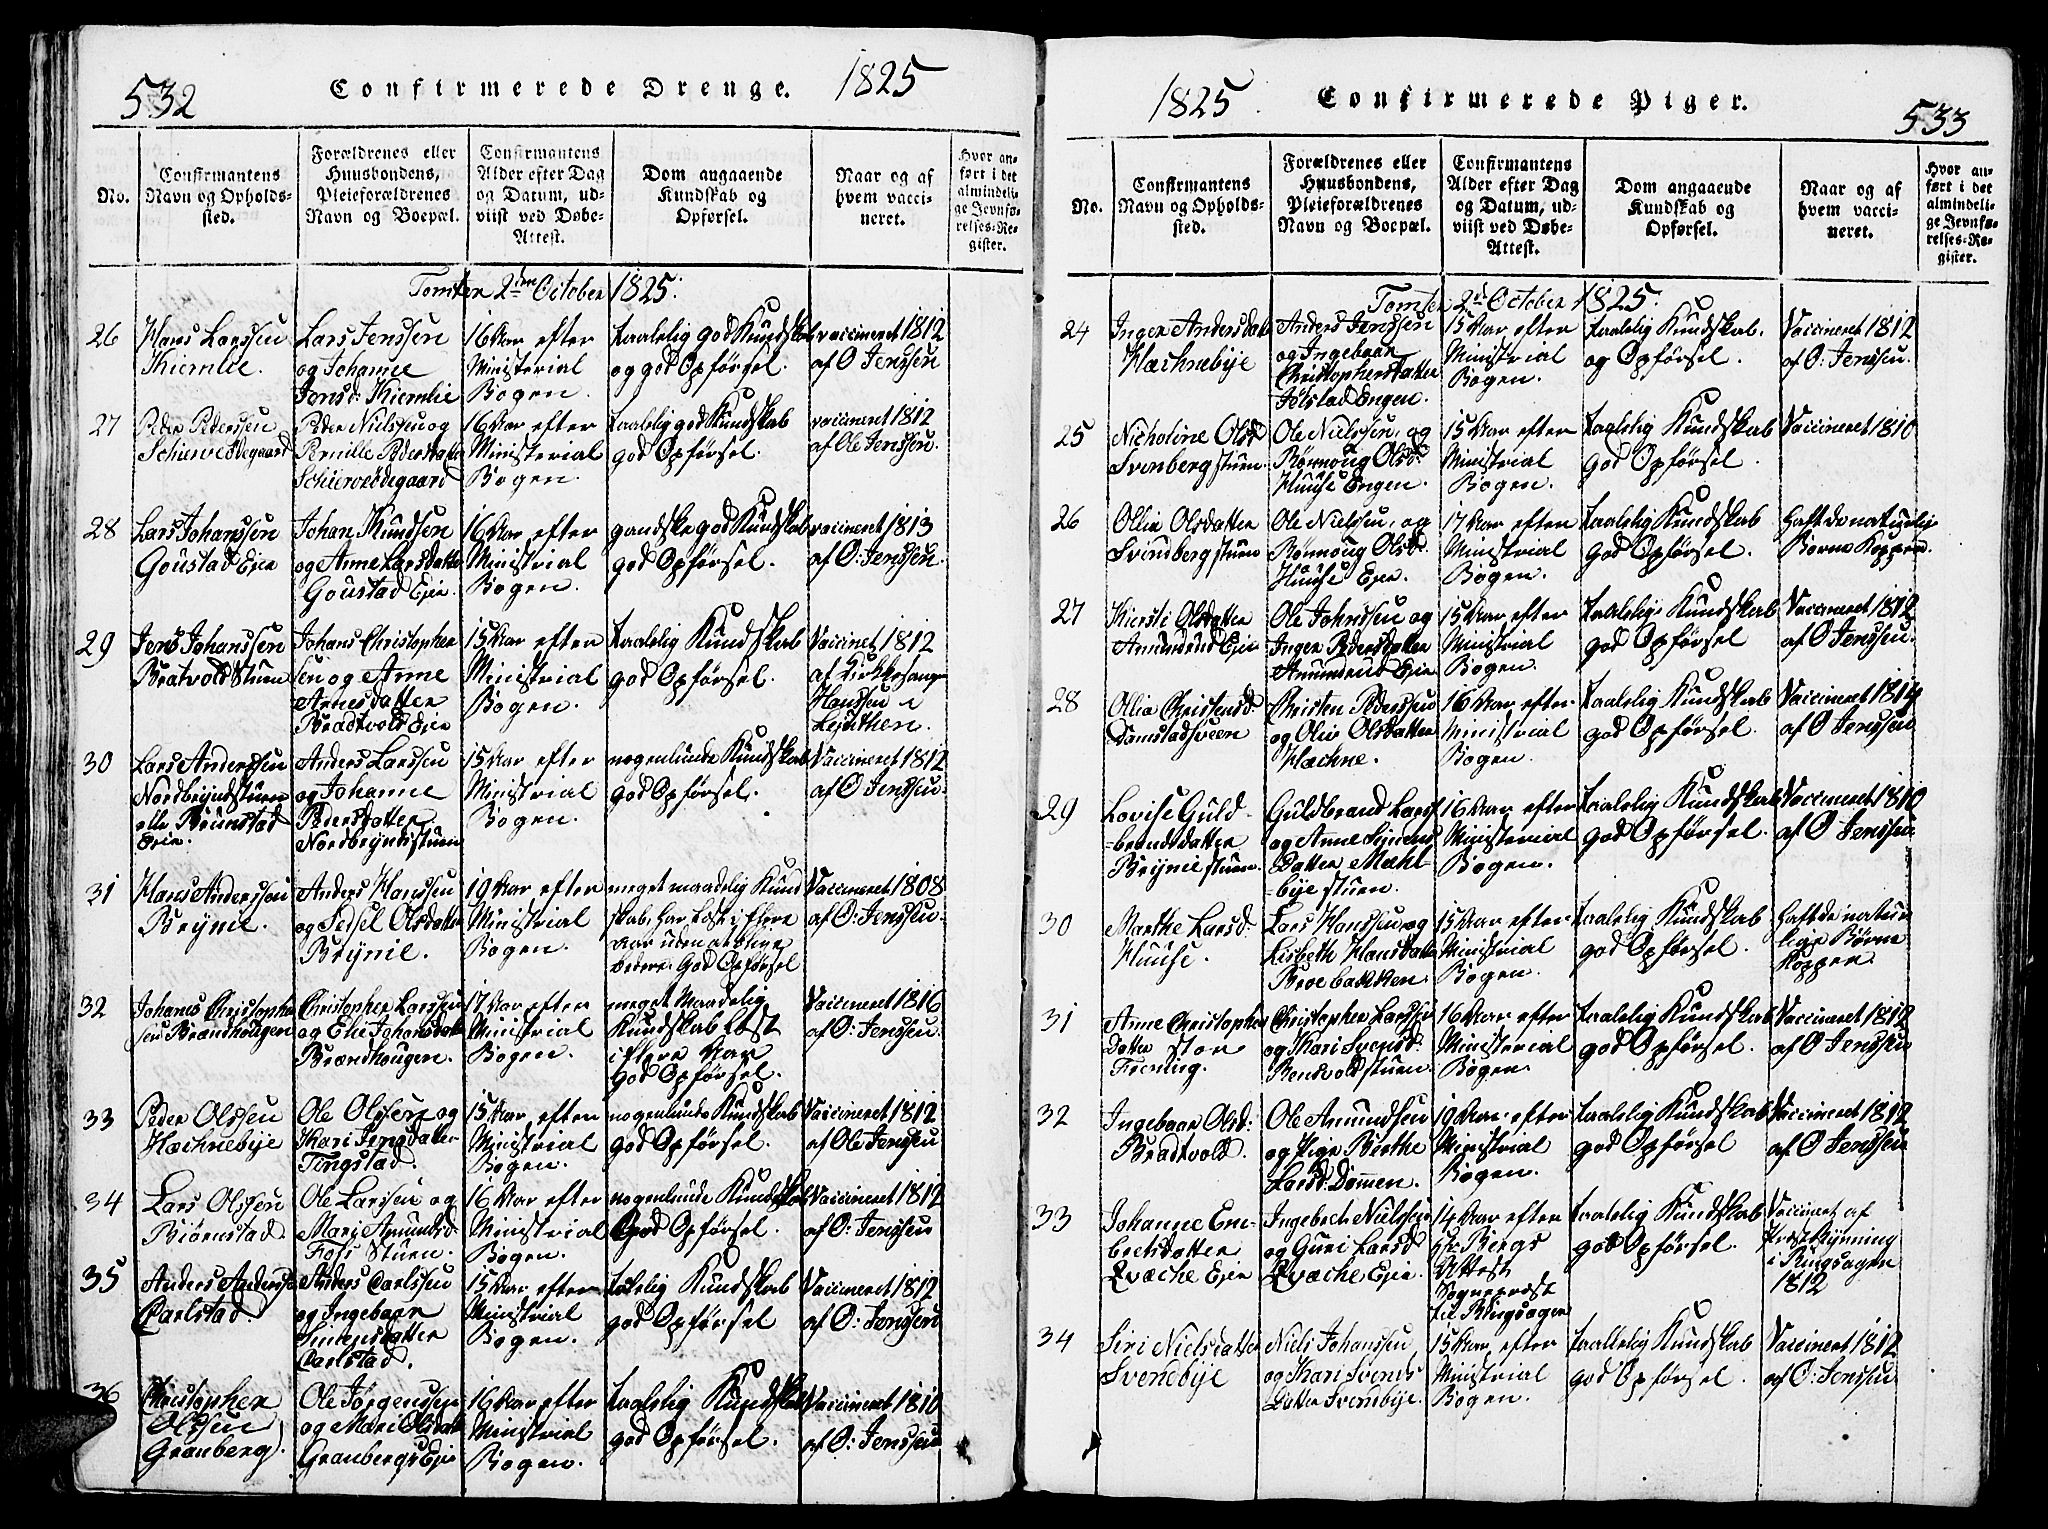 532
Confirmerede Drenge. 1825
No.
Confirmantens
Navn og Opholds-
sted.
Forældrenes eller
Huusbondens,
Pleieforældrenes
Navn og Boepæl.
Confirmantens
Alder efter Dag
og Datum, ud-
viist ved Døbe-
Attest.
Dom angaaende
Kundskab og
Opførsel.
Naar og af
hvem vacci-
neret.
Hvor an-
ført i det
almindeli-
ge Jevnfø-
relses-Re-
gister.
Tomten 2den October 1825.
26
Hans Larssen
Kiemlie.
Lars Jenssen
og Johanne
Jensd: Kiemlie
16 Aar efter
Ministerial
Bogen.
taalelig god Kundskab
og god Opførsel.
vaccineret 1812
af O: Jenssen
27
Peder Pedersen
Schierveødegaard
Peder Nielssen og
Pernille Pedersdatter
Schierveødegaard
16 Aar efter
Ministerial
Bogen.
taalelig god Kundskab
god Opførsel.
vaccineret 1812
af Ole Jenssen.
28
Lars Johanssen
Goustad Eje
Johan Knudsen
og Anne Larsdatter
Goustad Eje.
16 Aar efter
Ministrial
Bogen.
gandske god Kundskab
god Opførsel.
vaccineret 1813
af O: Jenssen.
29
Jens Johanssen
Bratvold Stuen
Johans Christopher
sen og Anne
Arnesdatter
Bradtvold Eje
15 Aar efter
Ministrial
Bogen.
taalelig Kundskab
god Opførsel.
Vaccinet 1812
af Kirkesanger
Hanssen i
Leuthen.
30
Lars Anderssen
Nordbryndstuen
elle Brunstad
Eje.
Anders Larssen
og Johanne
Pedersdatter
Nordbryndstuen
15 Aar efter
Ministrial
Bogen.
nogenlunde Kundskab
god Opførsel.
Vaccineret 1812
af O Jenssen.
31
Hans Anderssen
Brynie.
Anders Hanssen
og Sidsel Olsdatter
Brynie.
19 Aar efter
Ministrial
Bogen.
meget maadelig Kund
skab, har læst i flere
Aar uden at blive
bedere. God Opførsel
Vaccineret 1808
af O: Jenssen.
32
Johans Christopher
sen Brændhougen
Christopher Larssen
og Eli Johansdatter
Brændhougen.
17 Aar efter
Ministrial
Bogen.
meget Maadelig
Kundskab Læst
i flere Aar
God Opførsel.
Vaccineret 1816
af O: Jenssen.
33
Peder Olssen
Hæchnebye
Ole Olssen og
Kari Jensdatter
Tingstad.
15 Aar efter
Ministrial
Bogen.
nogenlunde Kundskab
god Opførsel.
Vaccineret 1812
af Ole Jenssen
34
Lars Olssen
Biørnstad.
Ole Larssen og
Mari Amundsd.
Fos Stuen.
16 Aar efter
Ministrial
Bogen.
nogenlunde Kundskab
God Opførsel.
Vaccineret 1812
af O: Jenssen
35
Anders Anderssen
Carlstad.
Anders Carlssen
og Ingebaar
Simensdatter
Carlstad.
15 Aar efter
Ministrial
Bogen.
taalelig Kundskab
god Opførsel
Vaccineret 1812
af O: Jenssen
36
Christopher
Olssen
Granberg.
Ole Jørgenssen
og Mari Olsdatter
Granbergs Eje
16 Aar efter
Ministrial
Bogen.
taalelig Kundskab
god Opførsel.
Vaccineret 1810
af O: Jenssen
1825.
Confirmerede Piger.
533
No.
Confirmantens
Navn og Opholds-
sted.
Forældrenes eller
Huusbondens,
Pleieforældrenes
Navn og Boepæl.
Confirmantens
Alder efter Dag
og Datum, ud-
viist ved Døbe-
Attest.
Dom angaaende
Kundskab og
Opførsel.
Naar og af
hvem vacci-
neret.
Hvor an-
ført i det
almindeli-
ge Jevnfø-
relses-Re-
gister.
Tomter 2d October 1825.
24
Inger Andersdatter
Hæchnebye
Anders Jenssen
og Ingebaar
Christophersdatter
Jølstad Engen.
15 Aar efter
Ministrial
Bogen.
taalelig Kundskab.
og Opførsel.
Vaccineret 1812
af O: Jenssen.
25
Nicholine Olsd
Svenberg stuen.
Ole Nielssen, og
Rønnoug Olsd:
Huuse Engen.
15 Aar efter
Ministrial
Bogen.
taalelig Kundskab
god Opførsel.
Vaccineret 1810
26
Ollia Olsdatter
Svindberg stuen
Ole Nielssen, og
Rønnoug Olsd:
Huuse Eje.
17 Aar efter
Ministrial
Bogen.
taalelig Kundskab
god Opførsel.
haft de naturlige
Børne Kopper.
27
Kiersti Olsdatter
Amundrud Eje
Ole Johnssen og
Inger Pedersdatter
Amundrud Eje
15 Aar efter
Ministrial
Bogen.
taalelig Kundskab
god Opførsel
Vaccineret 1812
af O Jenssen.
28
Ollia Christensd.
Damstadsveen
Christen Pederssen
og Oliv Olsdatter
Hæchne.
16 Aar efter
Ministrial
Bogen.
taalelig Kundskab
god Opførsel.
Vaccineret 1814
af O Jenssen
29
Lovise Guld-
-brandsdatter
Brynie stuen.
Guldbrand Larss
og Anne Simens
Datter Mæhl-
-bye stuen.
16 Aar efter
Ministrial
Bogen.
taalelig Kundskab
god Opførsel.
Vaccineret 1810
af O Jenssen
30
Marthe Larsd.
Huuse.
Lars Hanssen og
Lisbeth Hansdatter
Broebakken.
15 Aar efter
Ministrial
Bogen.
taalelig Kundskab
god Opførsel.
haft de natur
lige Børne
Kopper.
31
Anne Christopher
Datter stor
Frening.
Christopher Larssen
og Kari Svensd.
Rendvoldstuen.
16 Aar efter
Ministerial
Bogen.
taalelig Kundskab
god Opførsel.
Vaccineret 1812
af O Jenssen
32
Ingebaar Olsd:
Bradtvold.
Ole Amundssen
og Pige Berthe
Larsd: Dømmen.
19 Aar efter
Ministrial
Bogen.
taalelig Kundskab
god Opførsel
Vaccineret 1812
af O Jenssen
33
Johanne Em-
bretsdatter
Qvæche Eje
Ingebrech Nielssen
og Guri Larsd
Qvæche Eje.
14 Aar efter
Bergs
Attest
Sogneprest
til Ringsager
taalelig Kundskab
god Opførsel.
Vaccinet af
Prost Rynning
i Ringsager
1812
34
Siri Nielsdatter
Svenebye
Niels Johanssen
og Kari Svends
Datter Svennebye.
15 Aar efter
Ministrial
Bogen.
taalelig Kundskab
god Opførsel.
Vaccineret 1812
af O: Jenssen